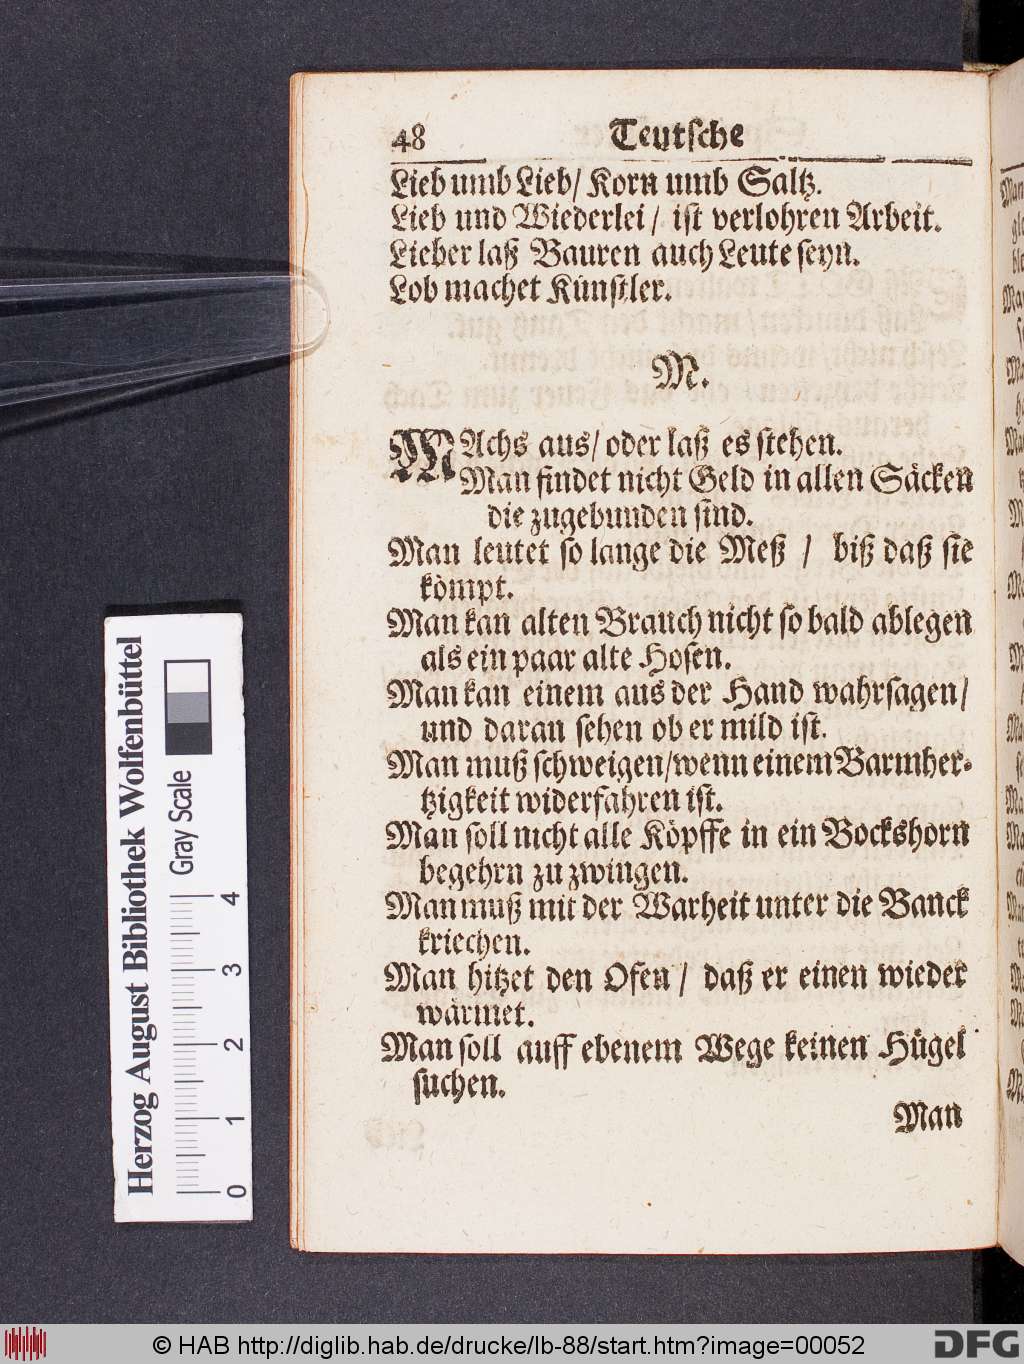 48 Teutſche
Lieb umb Lieb/ Korn umb Saltz.
Lieb und Wiederlei / iſt verlohren Arbeit.
Lieber laß Bauren auch Leute ſeyn.
Lob machet Künſtler.
M.
MAchs aus/ oder laß es ſtehen.
Man findet nicht Geld in allen Säcken
die zugebunden ſind.
Man leutet ſo lange die Meß / biß daß ſie
kömpt.
Man kan alten Brauch nicht ſo bald ablegen
als ein paar alte Hoſen.
Man kan einem aus der Hand wahrſagen/
und daran ſehen ob er mild iſt.
Man muß ſchweigen/wenn einem Barmher-
tzigkeit widerfahren iſt.
Man ſoll nicht alle Köpffe in ein Bockshorn
begehrn zu zwingen.
Man muß mit der Warheit unter die Banck
kriechen.
Man hitzet den Ofen / daß er einen wieder
wärmet.
Man ſoll auff ebenem Wege keinen Hügel
ſuchen.
Man
Herzog August Bibliothek Wolfenbüttel
Gray Scale
0 1 2 3 4
© HAB http://diglib.hab.de/drucke/lb-88/start.htm?image=00052
DFG